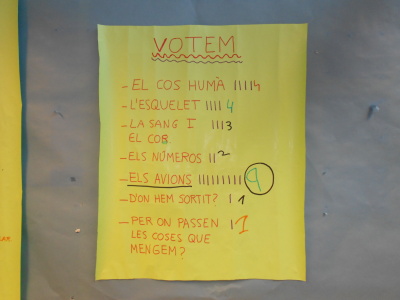 VOTEM
- EL COS HUMÀ |||| 4
- L'ESQUELET |||| 4
- LA SANG I ||| 3
EL COS
- ELS NÚMEROS || 2
- ELS AVIONS ||||||||| 9
- D'ON HEM SORTIT? | 1
- PER ON PASSEN | 1
LES COSES QUE
MENGEM?